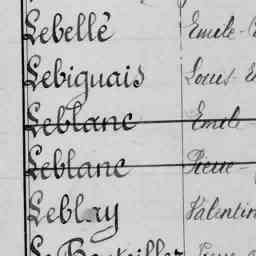 Lebellé Emile -
Lebiguais Louis -
Leblanc Emile
Leblanc Pierre -
Leblay Valentin